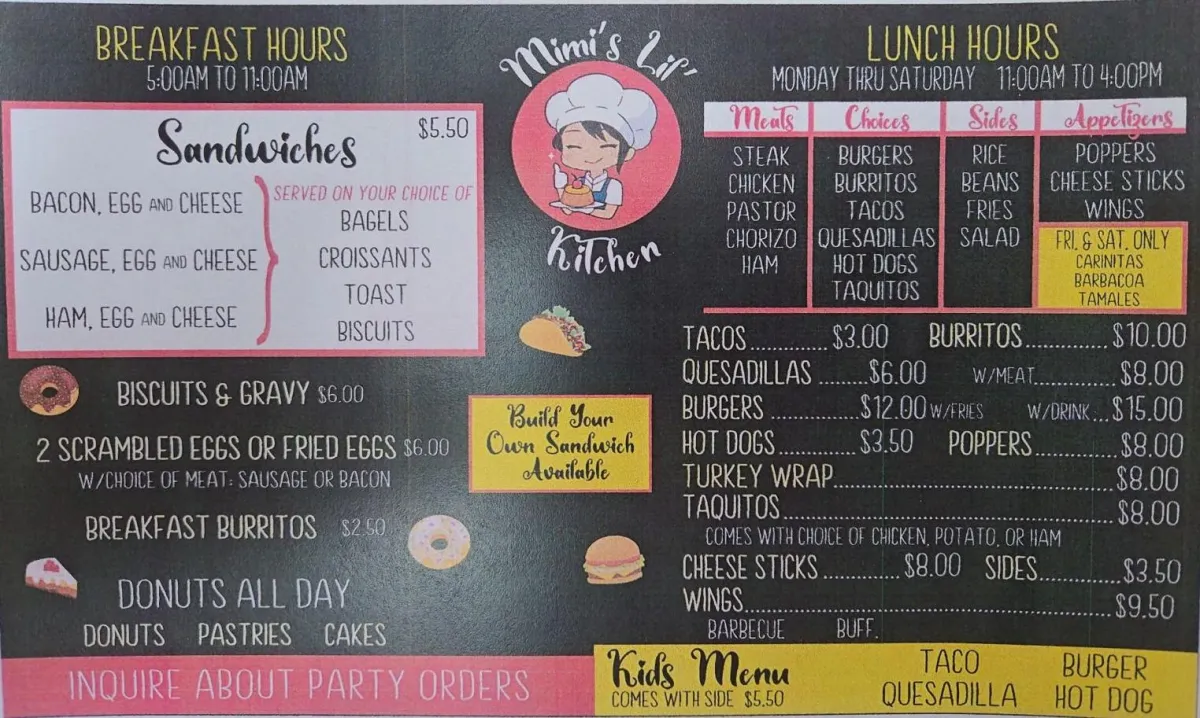 BREAKFAST HOURS
5:00AM TO 11:00AM
Sandwiches
$5.50
BACON, EGG AND CHEESE
SAUSAGE, EGG AND CHEESE
HAM, EGG AND CHEESE
SERVED ON YOUR CHOICE OF
BAGELS
CROISSANTS
TOAST
BISCUITS
BISCUITS & GRAVY $6.00
2 SCRAMBLED EGGS OR FRIED EGGS $6.00
W/CHOICE OF MEAT: SAUSAGE OR BACON
BREAKFAST BURRITOS $2.50
DONUTS ALL DAY
DONUTS PASTRIES CAKES
INQUIRE ABOUT PARTY ORDERS
Mimi's Lil'
Kitchen
Build Your
Own Sandwich
Available
LUNCH HOURS
MONDAY THRU SATURDAY 11:00AM TO 4:00PM
Meats
STEAK
CHICKEN
PASTOR
CHORIZO
HAM
Choices
BURGERS
BURRITOS
TACOS
QUESADILLAS
HOT DOGS
TAQUITOS
Sides
RICE
BEANS
FRIES
SALAD
Appetizers
POPPERS
CHEESE STICKS
WINGS
FRI. & SAT. ONLY
CARINITAS
BARBACOA
TAMALES
TACOS............. $3.00 BURRITOS.............. $10.00
QUESADILLAS ........$6.00 W/MEAT.............. $8.00
BURGERS ..............$12.00 W/FRIES W/DRINK... $15.00
HOT DOGS ............. $3.50 POPPERS............. $8.00
TURKEY WRAP.............................................. $8.00
TAQUITOS...................................................... $8.00
COMES WITH CHOICE OF CHICKEN, POTATO, OR HAM
CHEESE STICKS............. $8.00 SIDES............. $3.50
WINGS............................................................ $9.50
BARBECUE BUFF.
Kids Menu
COMES WITH SIDE $5.50
TACO BURGER
QUESADILLA HOT DOG